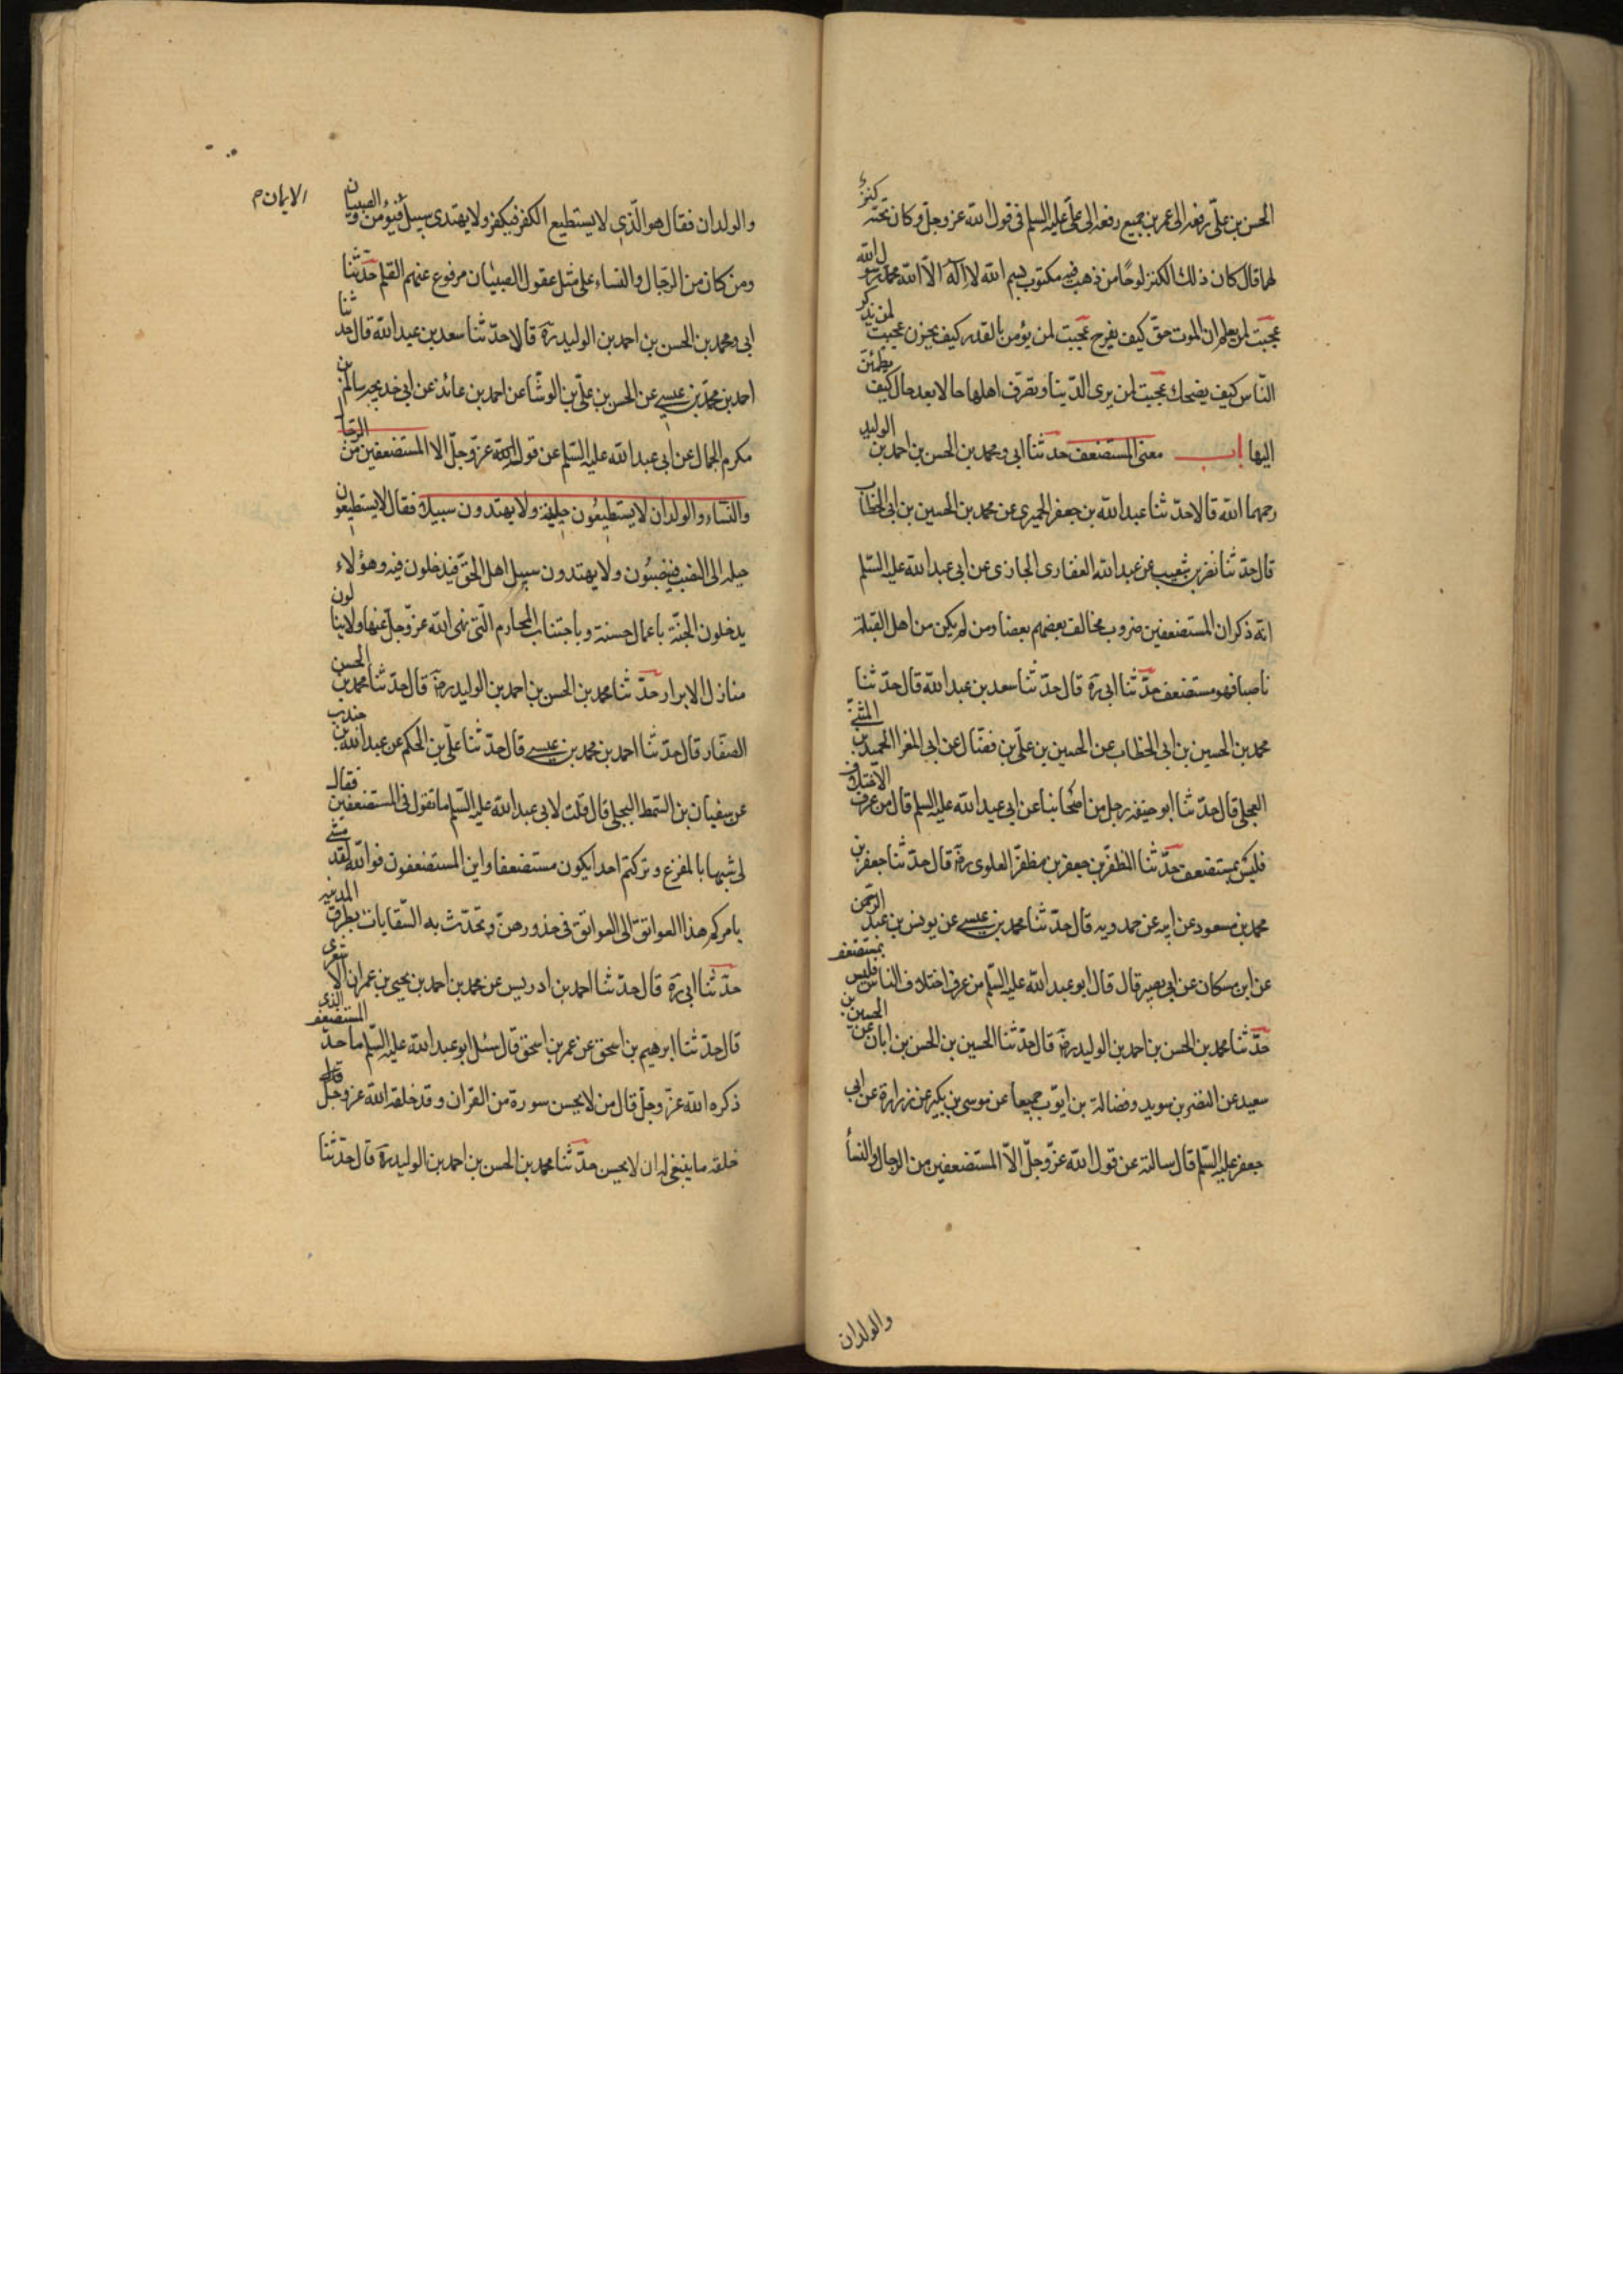 الحسن بن علىّ رفعه الى عمر بن جميع رفعه الى علىّ عليه السلم فى قول الله عز وجلّ وكان تحته كنزٌ
لهما قال كان ذلك الكنز لوحًا من ذهب فيه مكتوب بسم الله لا اله الاّ الله محمد رسول الله
عجبت لمن يعلم ان الموت حقّ كيف يفرح عجبت لمن يؤمن بالقدر كيف يحزن عجبت لمن يذكر
النّاس كيف يضحك عجبت لمن يرى الدّينا وتصرّف اهلها حالا بعد حال كيف يطمئنّ
اليها باب معنى المستضعف حدثنا ابى ومحمد بن الحسن بن احمد بن الوليد
رحمهما الله قالا حدّثنا عبد الله بن جعفر الحميرى عن محمد بن الحسين بن ابى الخطاب
قال حدّثنا نضر بن شعيب عن عبد الله الغفارى الجازى عن ابى عبد الله عليه السّلم
انّه ذكر ان المستضعفين ضروب يخالف بعضهم بعضا ومن لم يكن من اهل القبلة
ناصبا فهو مستضعف حدّثنا ابى رَه قال حدّثنا سعد بن عبد الله قال حدّثنا
محمد بن الحسين بن ابى الخطاب عن الحسين بن علىّ بن فضّال عن ابى المغرا الحميد بن المثنّى
العجلى قال حدّثنا ابو حنيفه رجل من اصحابنا عن ابى عبد الله عليه السلم قال من عرف الاختلاف
فليس بمستضعف حدّثنا المظفّر بن جعفر بن مظفّر العلوى رضَه قال حدّثنا جعفر بن
محمد بن مسعود عن ابيه عن حمدويه قال حدّثنا محمد بن عيسى عن يونس بن عبد الرّحمن
عن ابن مسكان عن ابى بصير قال قال ابو عبد الله عليه السّلم من عرف اختلاف الناس فليس بمستضعف
حدّثنا محمد بن الحسن بن احمد بن الوليد رضَه قال حدّثنا الحسين بن الحسن بن ابان عن الحسين بن
سعيد عن النضر بن سويد وفضالة بن ايّوب جميعا عن موسى بن بكير عن زرارة عن ابى
جعفر عليه السّلم قال سالته عن قول الله عزّ وجلّ الاّ المستضعفين من الرجال والنسأ
والولدان
والولدان فقال هو الّذى لا يستطيع الكفر فيكفر ولا يهتدى سبيل فيؤمن والصبيان
الايمان م
ومن كان من الرّجال والنساء على مثل عقول الصبيان مرفوع عنهم القلم حدّثنا
ابى ومحمد بن الحسن بن احمد بن الوليد رَه قالا حدّثنا سعد بن عبد الله قال حدثنا
احمد بن محمّد بن عيسى عن الحسن بن علىّ بن الوشّا عن احمد بن عائذ عن ابى خديجه سالم بن
مكرم الجمال عن ابى عبد الله عليه السّلم عن قول الله عزّ وجلّ الا المستضعفين من الرّجال
والنّساء والولدان لا يستطيعُون حيلة ولا يهتدون سبيلا فقال لا يستطيعون
حيله الى النصب فينصبُون ولا يهتدون سبيل اهل الحقّ فيدخلون فيه وهؤلاء
يدخلون الجنّة باعمال حسنة وباجتناب المحارم الّتى نهى الله عزّ وجلّ عنها ولا ينالون
منازل الابرار حدّثنا محمد بن الحسن بن احمد بن الوليد رضَه قال حدّثنا محمد بن الحسن
الصفّار قال حدّثنا احمد بن محمد بن عيسى قال حدّثنا علىّ بن الحكم عن عبد الله بن جندب
عن سفيان بن السّمط البجلى قال قلت لابى عبد الله عليه السّلم ما تقول فى المستضعفين فقال
لى شبيها بالمفزع وتركتم احدا يكون مستضعفا واين المستضعفون فوالله لقد مشى
بامركم هذا العواتق الى العواتق فى خدورهنّ وتحّدّث به السّقايات بطرق المدينه
حدّثنا ابى رَه قال حدّثنا احمد بن ادريس عن محمد بن احمد بن يحيى بن عمران الاشعرى
قال حدّثنا ابرهيم بن اسحق عن عمر بن اسحق قال سئل ابو عبد الله عليه السّلم ما حدّ المستضعف الذى
ذكره الله عزّ وجلّ قال من لا يحسن سورة من القران وقد خلقه الله عز وجلّ
خلقه ما ينبغى له ان لا يحسن حدّثنا محمد بن الحسن بن احمد بن الوليد رَه قال حدّثنا